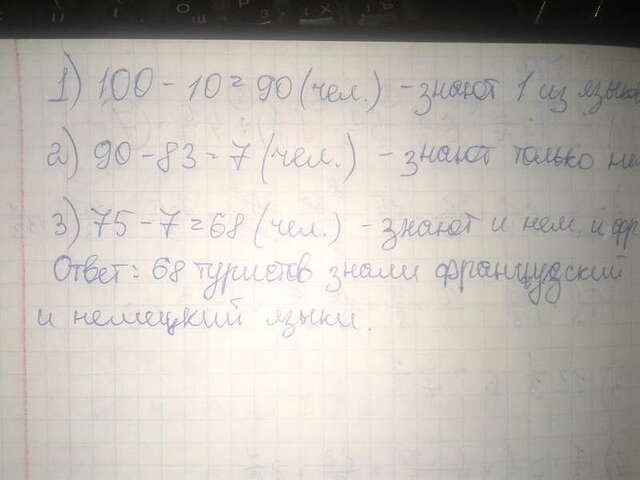 1) 100 - 10 = 90 (чел.) - знают 1 из
2) 90 - 83 = 7 (чел.) - знают только
3) 75 - 7 = 68 (чел.) - знают и нем. и фр
Ответ: 68 туристов знали французский
и немецкий языки.